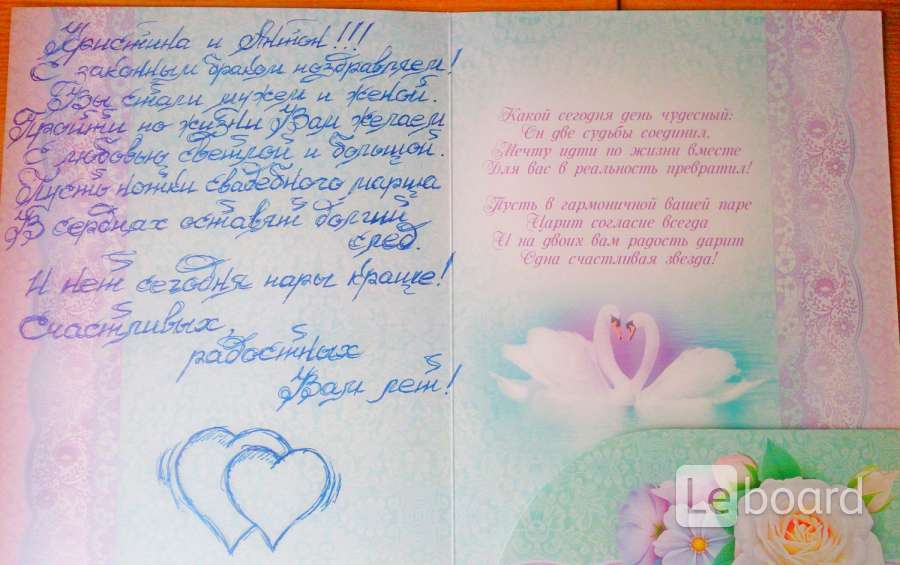 Кристина и Антон!!!
С законным браком поздравляем!
Вы стали мужем и женой.
Пройти по жизни Вам желаем
С любовью светлой и большой.
Пусть нотки свадебного марша
В сердцах оставят долгий
след.
И нет сегодня пары краше!
Счастливых,
радостных
Вам лет!
Какой сегодня день чудесный:
Он две судьбы соединил,
Мечту идти по жизни вместе
Для вас в реальность превратил!
Пусть в гармоничной вашей паре
Царит согласие всегда
И на двоих вам радость дарит
Одна счастливая звезда!
Le board